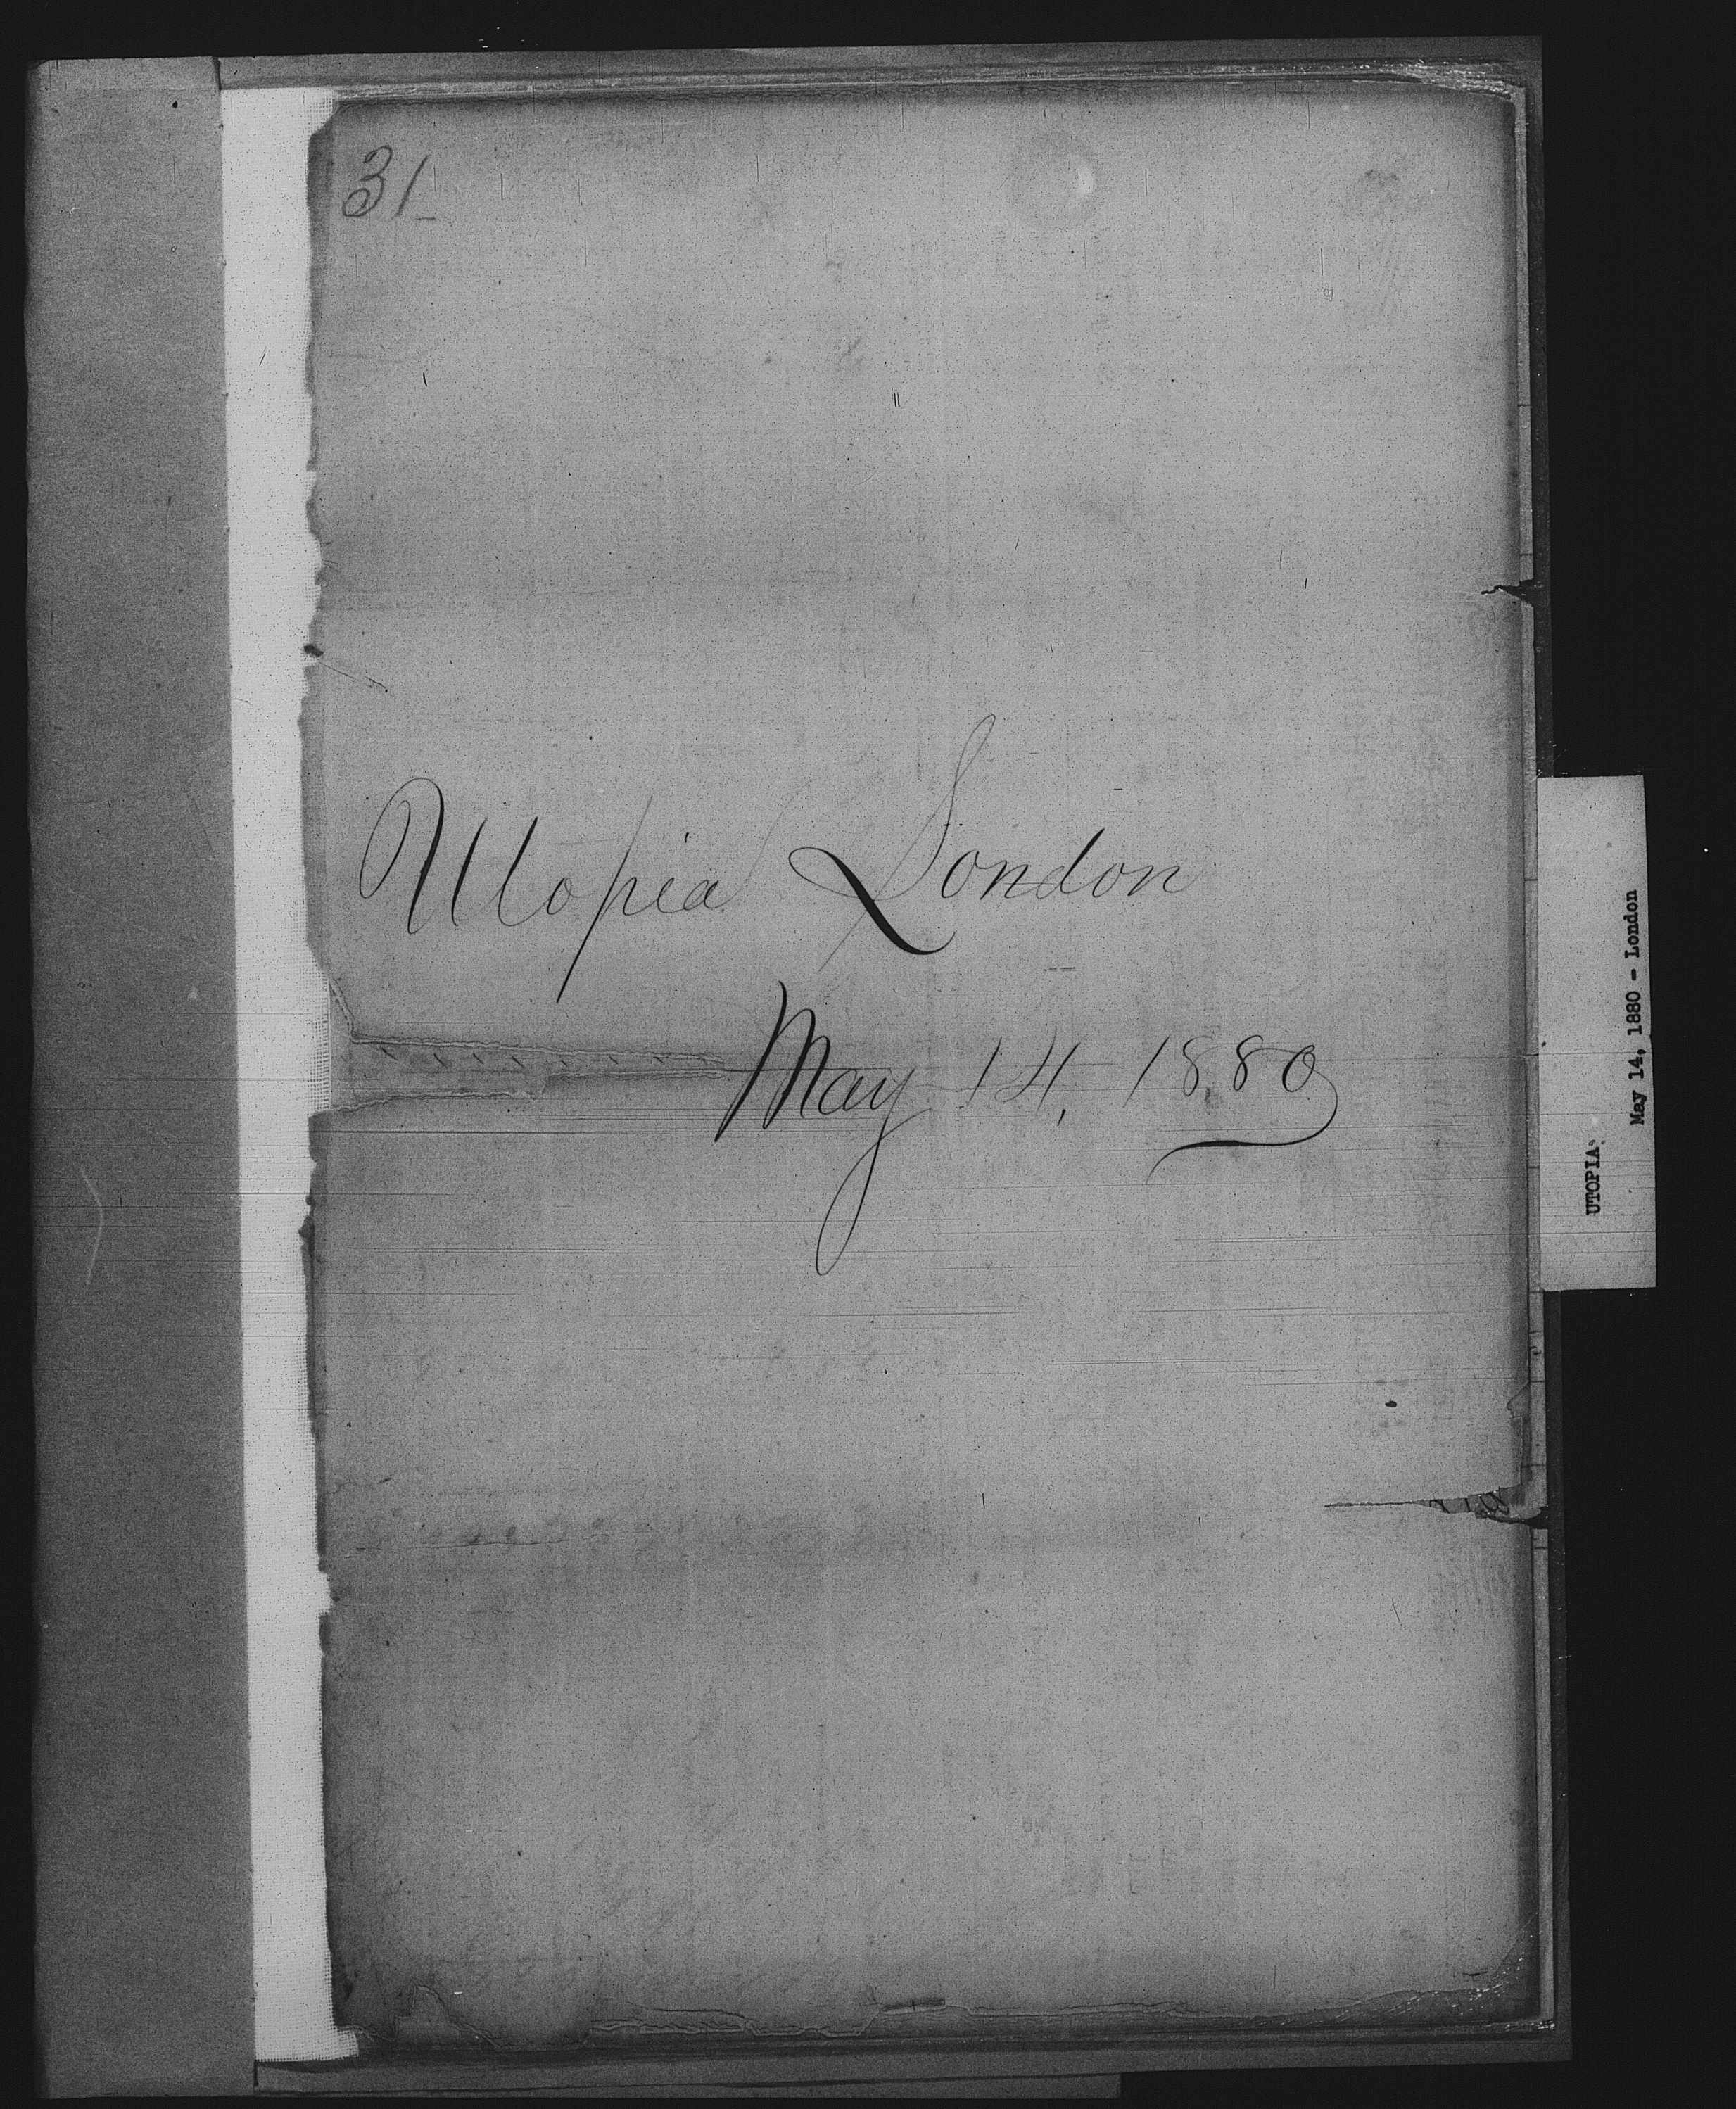 31
Utopia London
May 14, 1880
UTOPIA:
May 14, 1880 - London